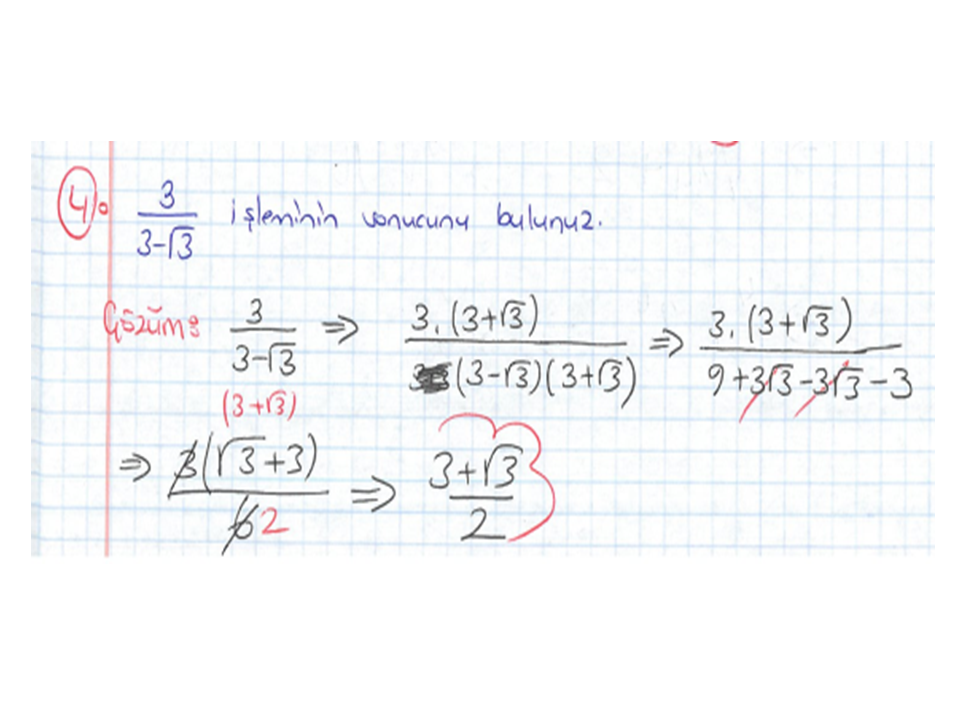 4. 3/(3-√3) işleminin sonucunu bulunuz.
Çözüm: 3/(3-√3) (3+√3) ⇒ 3.(3+√3)/((3-√3)(3+√3)) ⇒ 3.(3+√3)/(9+3√3-3√3-3)
⇒ 3(√3+3)/6 2 ⇒ (3+√3)/2